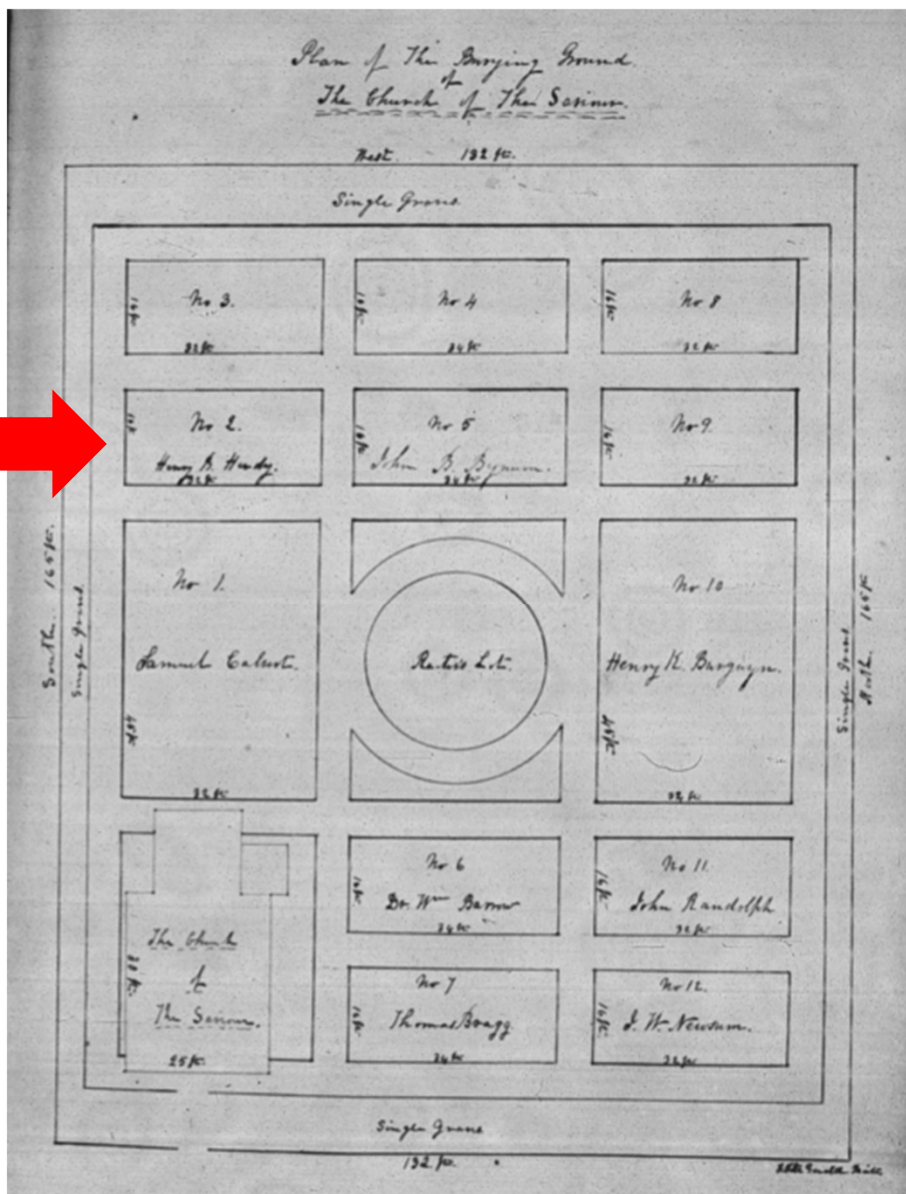 Plan of The Burying Ground
of
The Church of The Saviour.
West. 132 ft.
Single Graves
No 3.
16 ft.
32 ft.
No 4
16 ft.
34 ft.
No 8
16 ft.
32 ft.
No 2.
Henry B. Hardy.
32 ft.
No 5
16 ft.
John B. Bynum.
34 ft.
No 9.
16 ft.
32 ft.
South. 165 ft.
Single Graves
No 1.
Samuel Calvert.
48 ft.
32 ft.
Lot.
No 10
Henry K. Burgwyn.
48 ft.
32 ft.
Single Graves
North. 165 ft
The Church
of
The Saviour.
38 ft.
25 ft.
No 6
16 ft.
Dr. Wm Barrow
34 ft.
No 11.
16 ft.
John Randolph
32 ft.
No 7
16 ft.
Thomas Bragg.
34 ft.
No 12.
16 ft.
J. W. Newsum.
32 ft.
Single Graves
132 ft.